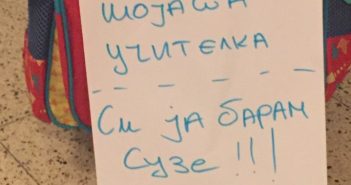 мојата
учителка
Си ја барам
Сузе !!!